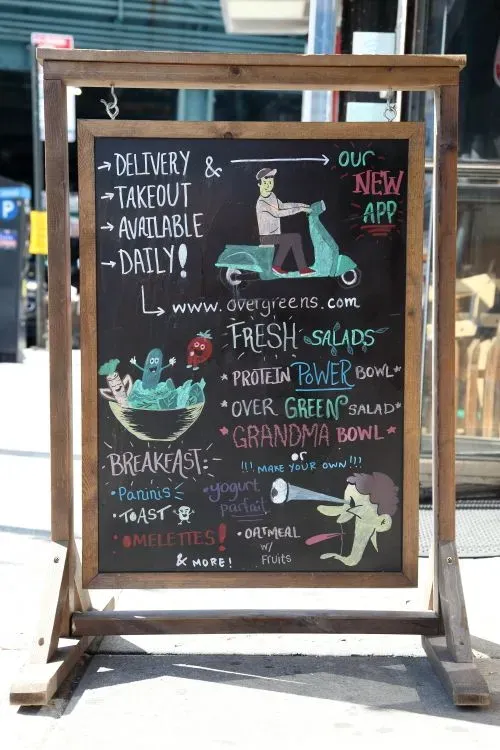 →DELIVERY &
→TAKEOUT
→AVAILABLE
→DAILY!
→ OUR
NEW
APP
www.overgreens.com
FRESH SALADS
*PROTEIN POWER BOWL*
*OVER GREEN SALAD*
*GRANDMA BOWL*
or
!!! MAKE YOUR OWN!!!
BREAKFAST:
•Paninis
•TOAST
•OMELETTES!
•yogurt
parfait
•OATMEAL
W/
Fruits
& MORE!
P